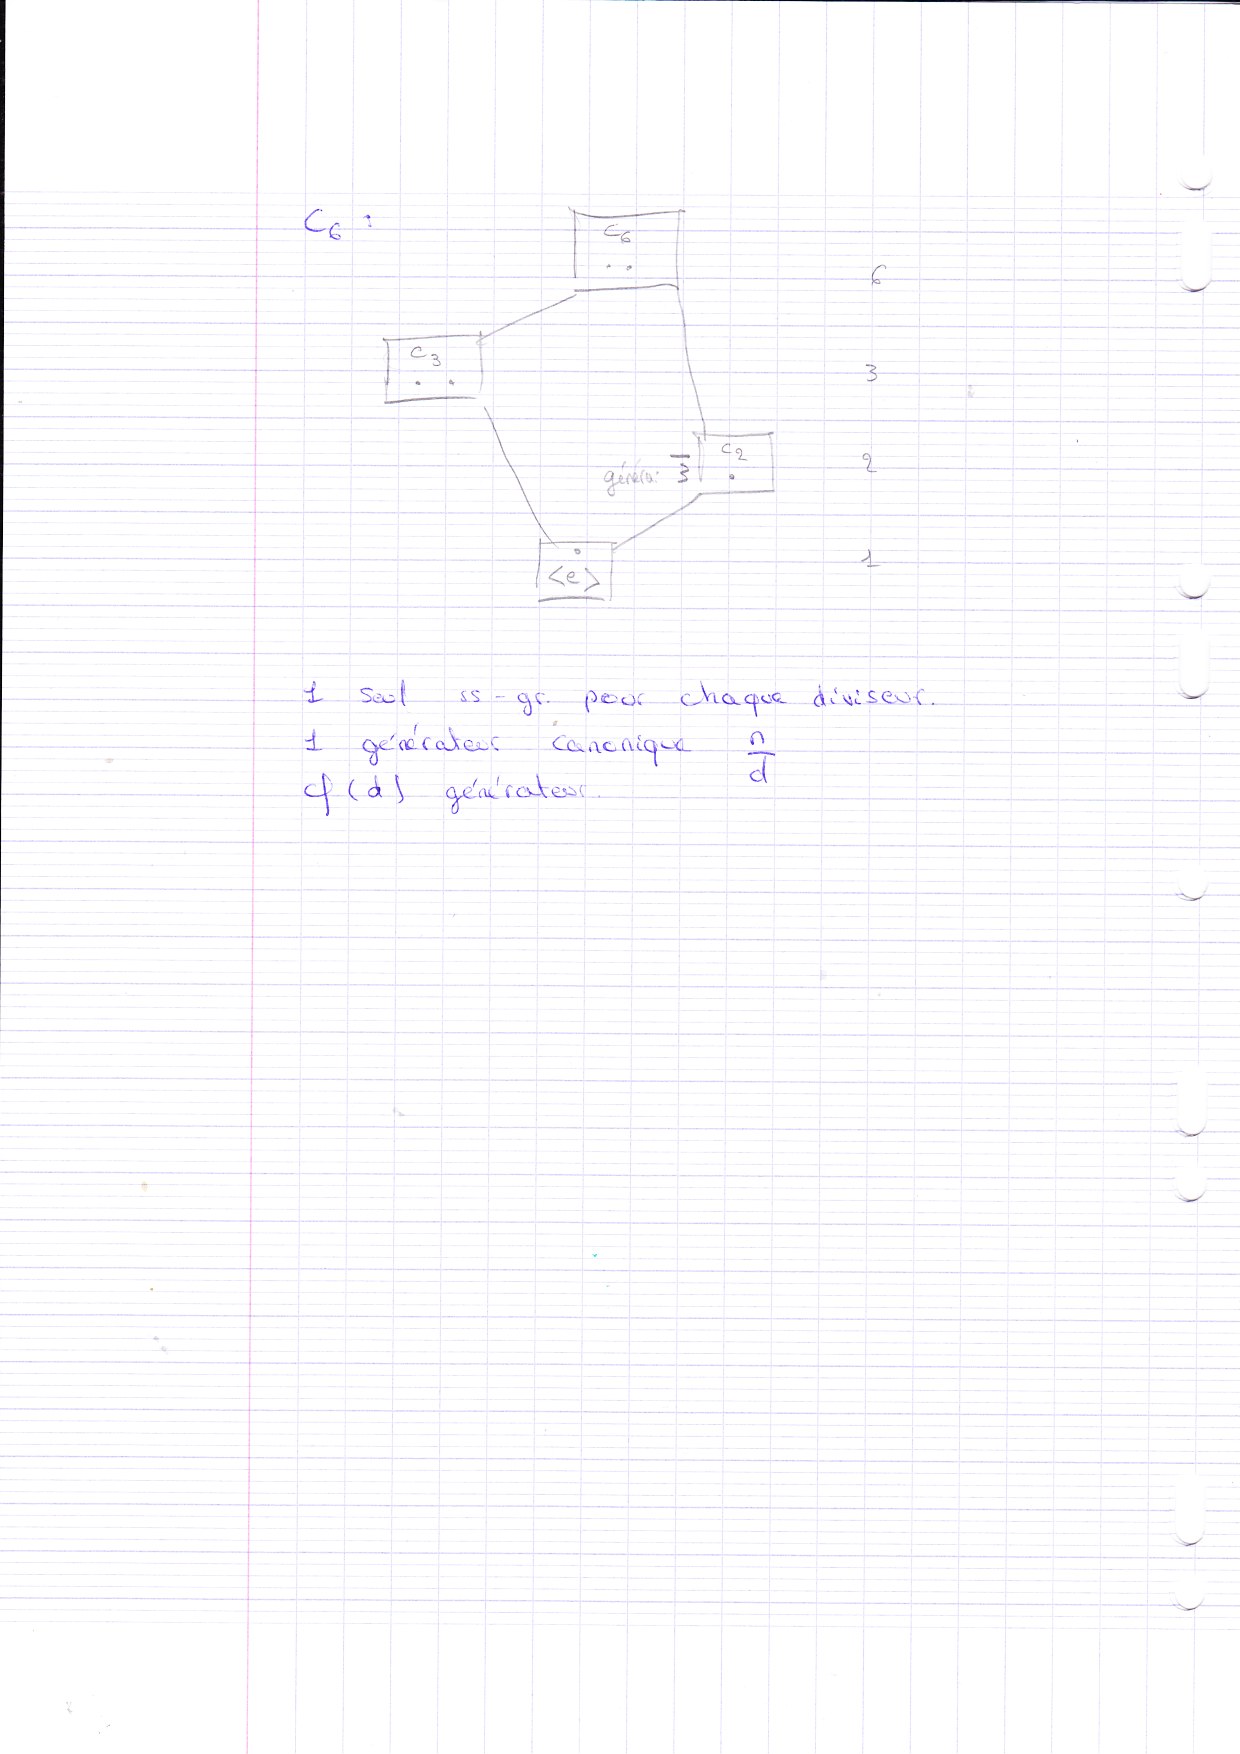 C₆ :
C₆
6
C₃
3
C₂
généra. 3̅
2
<e>
1
1 seul ss-gr. pour chaque diviseur.
1 générateur canonique n/d
φ(d) générateur.